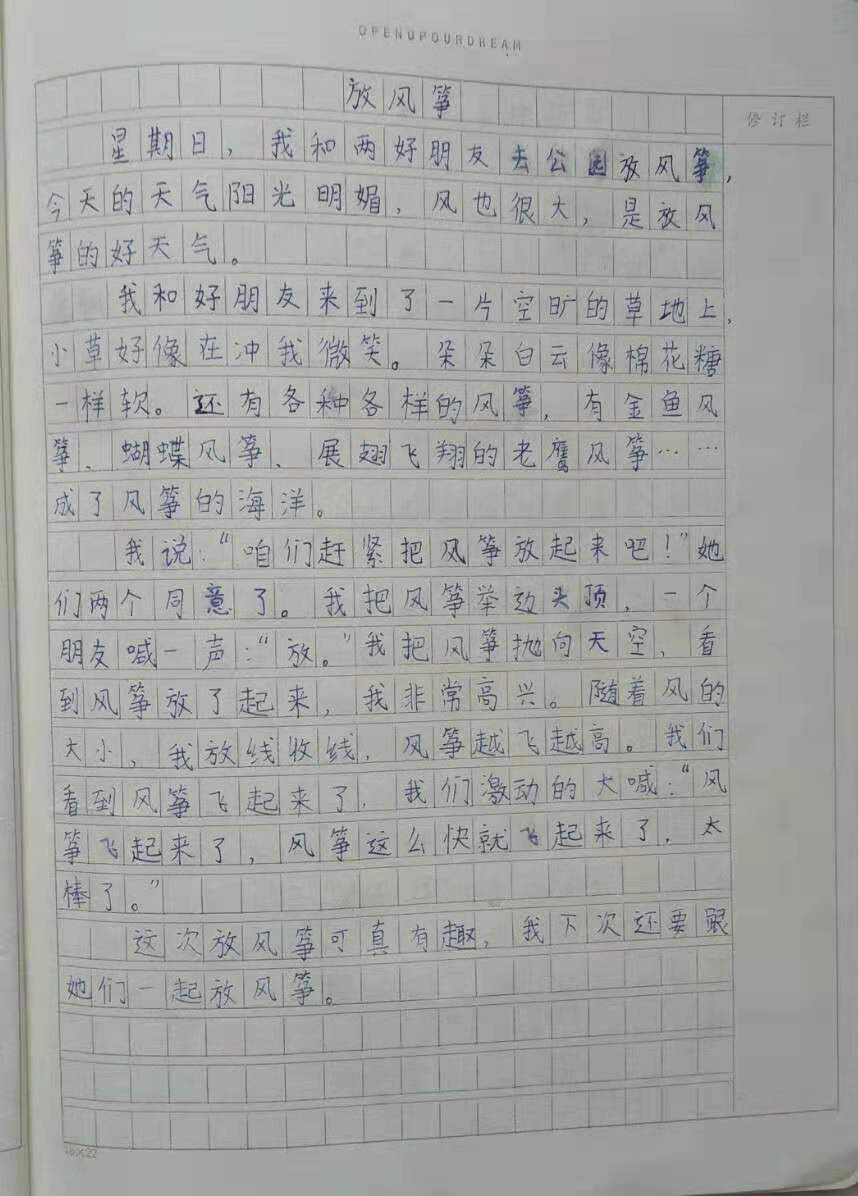 OPENUPOURDREAM
放风筝
修订栏
星期日，我和两好朋友去公园放风筝，
今天的天气阳光明媚，风也很大，是放风
筝的好天气。
我和好朋友来到了一片空旷的草地上，
小草好像在冲我微笑。朵朵白云像棉花糖
一样软。还有各种各样的风筝，有金鱼风
筝、蝴蝶风筝、展翅飞翔的老鹰风筝……
成了风筝的海洋。
我说：“咱们赶紧把风筝放起来吧！”她
们两个同意了。我把风筝举过头顶，一个
朋友喊一声：“放。”我把风筝抛向天空，看
到风筝放了起来，我非常高兴。随着风的
大小，我放线收线，风筝越飞越高。我们
看到风筝飞起来了，我们激动的大喊：“风
筝飞起来了，风筝这么快就飞起来了，太
棒了。”
这次放风筝可真有趣，我下次还要跟
她们一起放风筝。